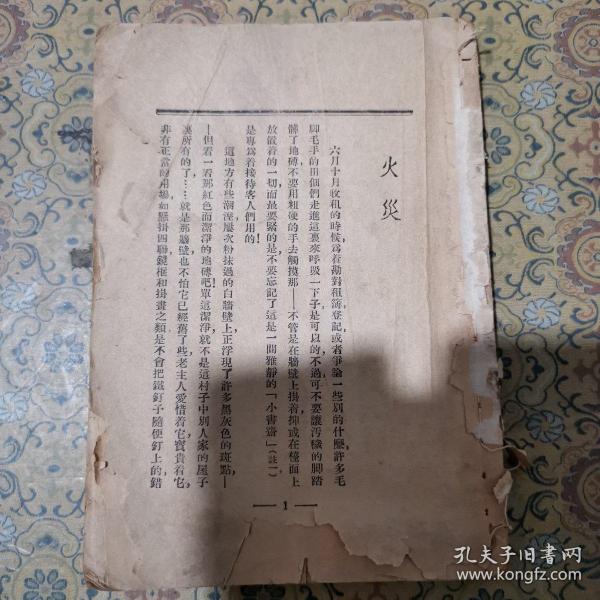 火災
六月十月收租的時候，爲着勘對租簿登記，或者爭論一些别的什麽，許多毛
脚毛手的田佃們走進這裏來呼吸一下子是可以的，不過可不要讓汚穢的脚踏
髒了地磚，不要用粗硬的手去觸摸那——不管是在牆壁上掛着，抑或在檯面上
放置着的一切，而最要緊的是不要忘記了這是一間雅靜的「小書齋」（註一）
是專爲着接待客人們用的！
這地方有些潮溼，屢次粉抹過的白牆壁上正浮現了許多黑灰色的斑點——
—但看一看那紅色而潔淨的地磚吧！單這潔淨，就不是這村子中别人家的屋子
裏所有的了……就是那牆壁也不怕它已經舊了些，老主人愛惜着它，寶貴着它，
非有正當的用場，如懸掛四聯鏡框和掛畫之類，是不會把鐵釘子隨便釘上的，錯
— 1 —
孔夫子旧书网
www.kongfz.com